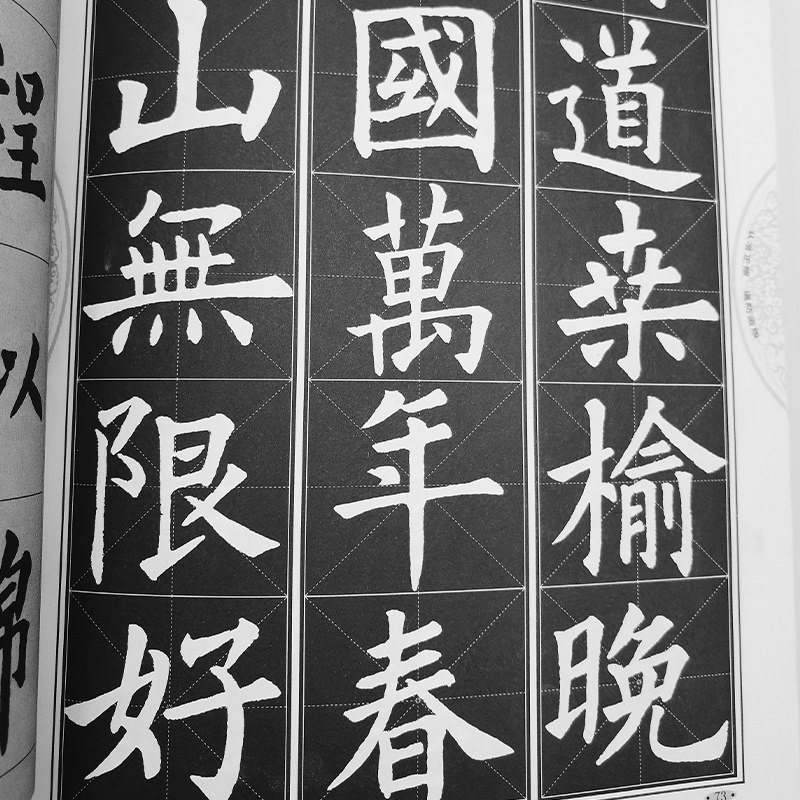 道桒榆晚
國萬年春
山無限好
程
73